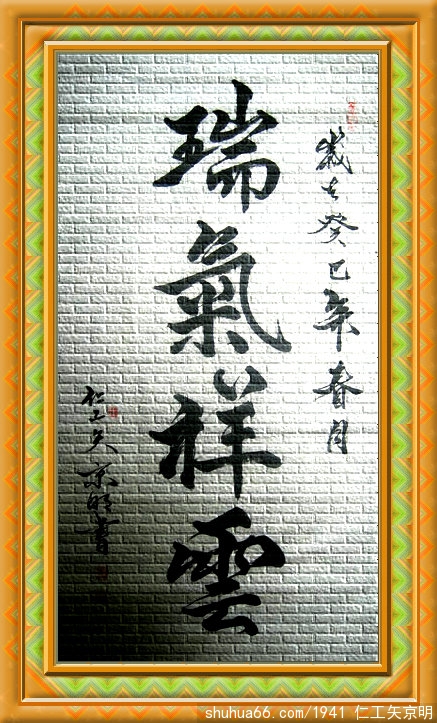 歲在癸巳年春月
瑞氣祥雲
仁工矢京明書
shuhua66.com/1941 仁工矢京明